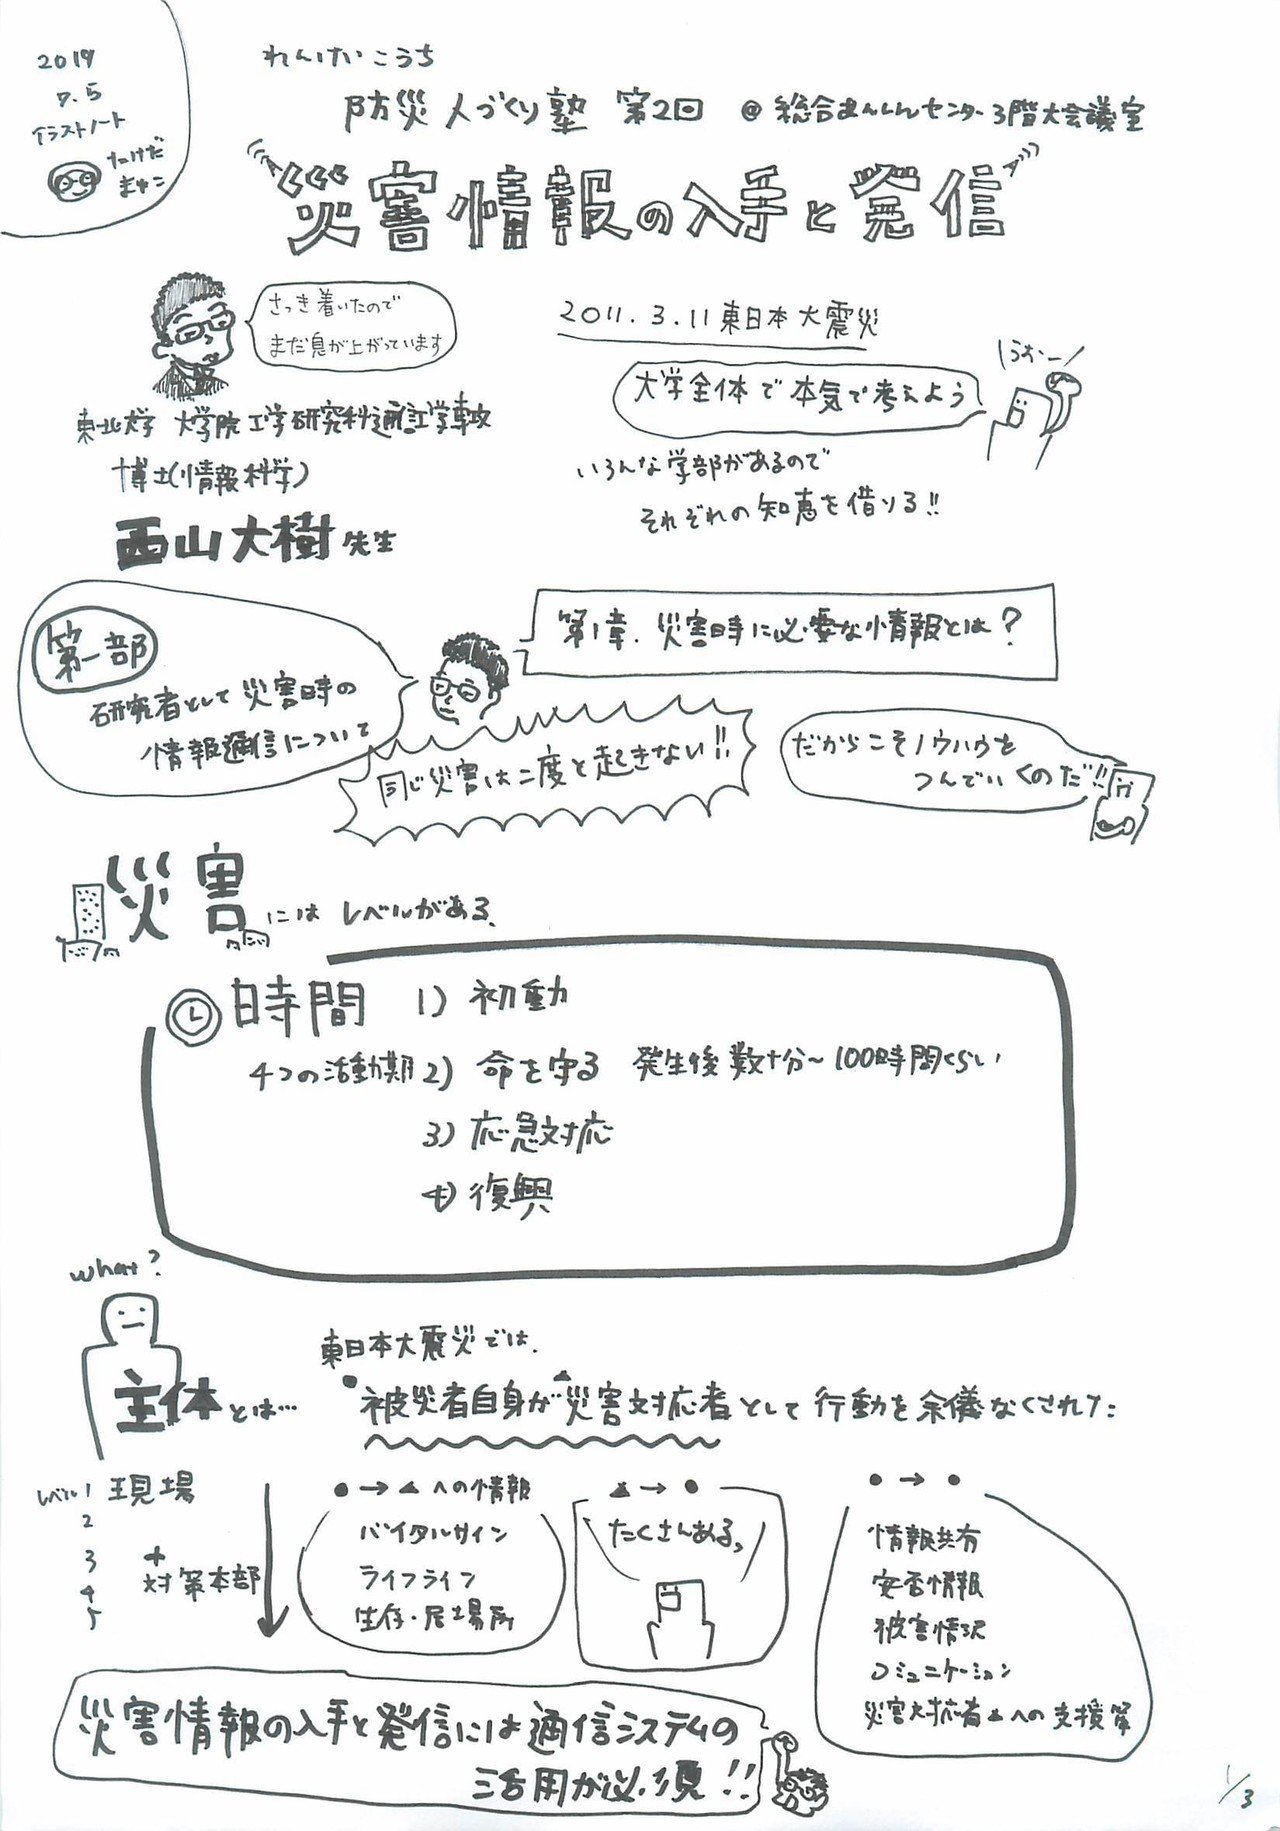 2019
7.5
イラストノート
たけだ
まゆこ
れんけいこうち
防災人づくり塾 第2回 @総合あんしんセンター3階大会議室
災害情報の入手と発信
さっき着いたので
まだ息が上がっています
東北大学 大学院工学研究科通信工学専攻
博士(情報科学)
西山大樹先生
2011.3.11東日本大震災
うおー
大学全体で本気で考えよう
いろんな学部があるので
それぞれの知恵を借りる!!
第一部
研究者として災害時の
情報通信について
第1章.災害時に必要な情報とは?
同じ災害は二度と起きない!!
だからこそノウハウを
つんでいくのだ!!
災害にはレベルがある、
時間 1) 初動
4つの活動期 2) 命を守る 発生後数十分〜100時間くらい
3) 応急対応
4) 復興
what?
主体とは…
東日本大震災では、
●被災者自身が▲災害対応者として行動を余儀なくされた:
レベル1 現場
2
3 +
4 対策本部
5
●→▲への情報
バイタルサイン
ライフライン
生存・居場所
▲→●
たくさんある、
●→●
情報共有
安否情報
被害情況
コミュニケーション
災害対応者▲への支援等
災害情報の入手と発信には通信システムの
活用が必須!!
1/3